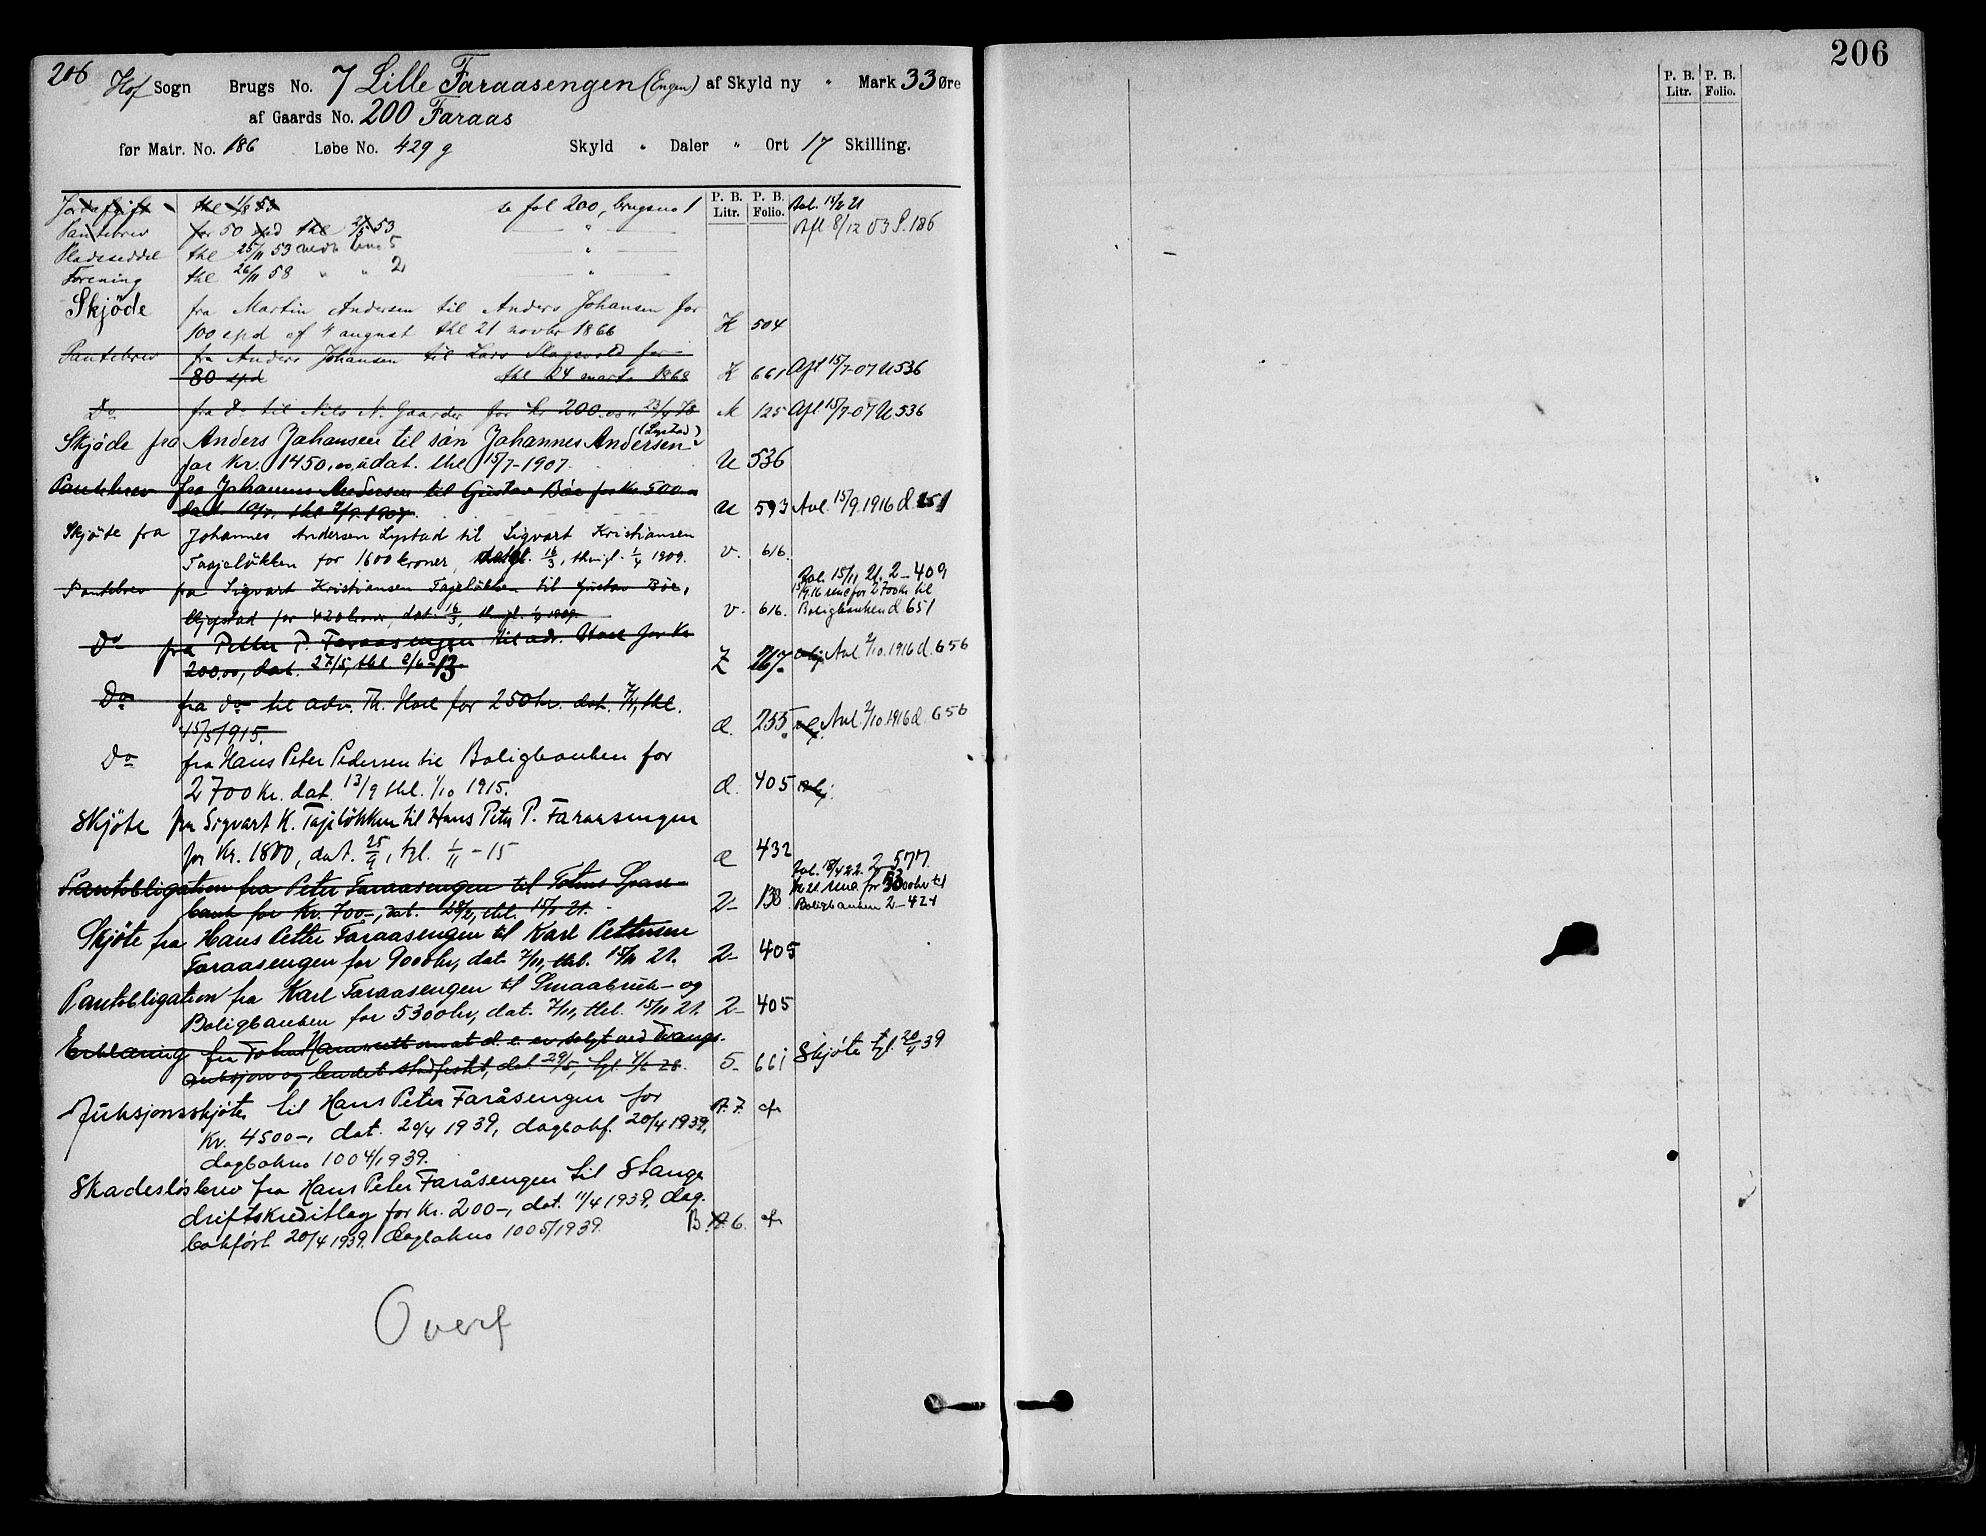 206 Hof Sogn Brugs No. 7 Lille Faraasengen (Engen) af Skyld ny " Mark 33 Øre
af Gaards No. 200 Faraas
før Matr. No. 186 Løbe No. 429 g Skyld " Daler " Ort 17 Skilling.
P. B. Litr. P. B. Folio.
thl 1/8 53 se fol 200, brugsno 1
Pantebrev for 50 spd thl 53 " Afl 8/12 03 P. 186
Pladsseddel thl 25/11 53 "
Forening thl 26/11 58 " " 2 "
Skjöde fra Martin Andersen til Anders Johansen for
100 spd af 4 august thl 21 novbr 1866 K 504
Pantebrev fra Anders Johansen til Lars Slagsvold for
80 spd thl 24 marts 1868 K 661 Afl 15/7-07 U 536
Do fra Do til Nils N. Gaarder for kr 200.00 23/4 78 M 125 Afl 15/7-07 U 536
Skjøde fra Anders Johansen til søn Johannes Andersen (Lystad)
for Kr. 1450,00, udat. thl 15/7-1907. U 536
Pantebrev fra Johannes Andersen til Gustav Bøe for Kr. 500.
dat. thl 1907 U 593 Avl. 15/9.1916 d. 651
Skjöte fra Johannes Andersen Lystad til Sigvart Kristiansen
Tajeløkken for 1600 kroner, 16/3, thingl. 1/4 1909. v. 616.
Pantebrev fra Sigvart Kristiansen Tajeløkken til Gustav Böe,
for 420 kroner, dat. 16/3, thingl. 1/4 1909. v. 616.
Avl. 15/11 21. 2-409
15/9.16 for 2700 kr til
Boligbanken d 651
Do fra Petter P. Faraasengen til adv. Hoel for Kr
200.00, dat. 27/5, thl 2/6-13. Z 267 Avl. 2/10.1916 d. 656
Do fra do til adv. Th. Hoel for 250 kr. dat. 7/4, thl.
15/5 1915. d. 255 Avl. 2/10.1916 d. 656
Do fra Hans Peter Pedersen til Boligbanken for
2700 Kr. dat. 13/9 thl. 1/10 1915. d. 405
Skjöte fra Sigvart K. Tajeløkken til Hans Peter P. Faraasengen
for Kr. 1800, dat. 25/9, tgl. 1/11-15 d 432
Pantobligation fra Peter Faraasengen til Totens Spare-
bank for Kr. 700-, dat. 28/2, thl. 15/3 21. 2- 138
Avl. 18/4 22. 2-577.
for 5300 kr til
Boligbanken 2-424
Skjöte fra Hans Petter Faraasengen til Karl Pettersen
Faraasengen for 9000 kr, dat. 7/11, thl. 15/11 21. 2- 405
Pantobligation fra Karl Faraasengen til Smaabruk- og
Boligbanken for 5300 kr, dat. 7/11, thl. 15/11 21. 2- 405
Erklæring fra Toten Namsrett om at d. e. er solgt ved Tvangs-
auksjon og budet stadfestet, dat 29/5, tgl. 4/6 28. 5- 661 Skjöte tgl. 20/4 39
Auksjonsskjöte til Hans Peter Faråsengen for
Kr. 4500-, dat. 20/4 1939, dagbokf. 20/4 1939, A. 7.
dagbokno 1004/1939.
Skadeslösbrev fra Hans Peter Faråsengen til Stange
driftskreditlag for Kr. 200-, dat. 11/4 1939, dag-
bokført 20/4 1939. Dagbokno 1005/1939. B 6.
Overf
206
P. B. Litr. P. B. Folio.